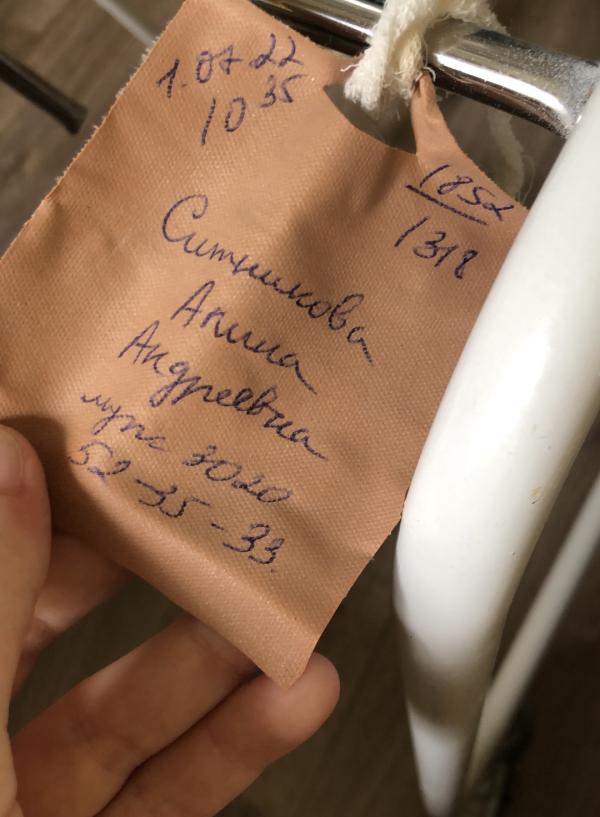 1.07 22
10 35
1852
1318
Ситникова
Алина
Андреевна
муж 3020
52-35-33.